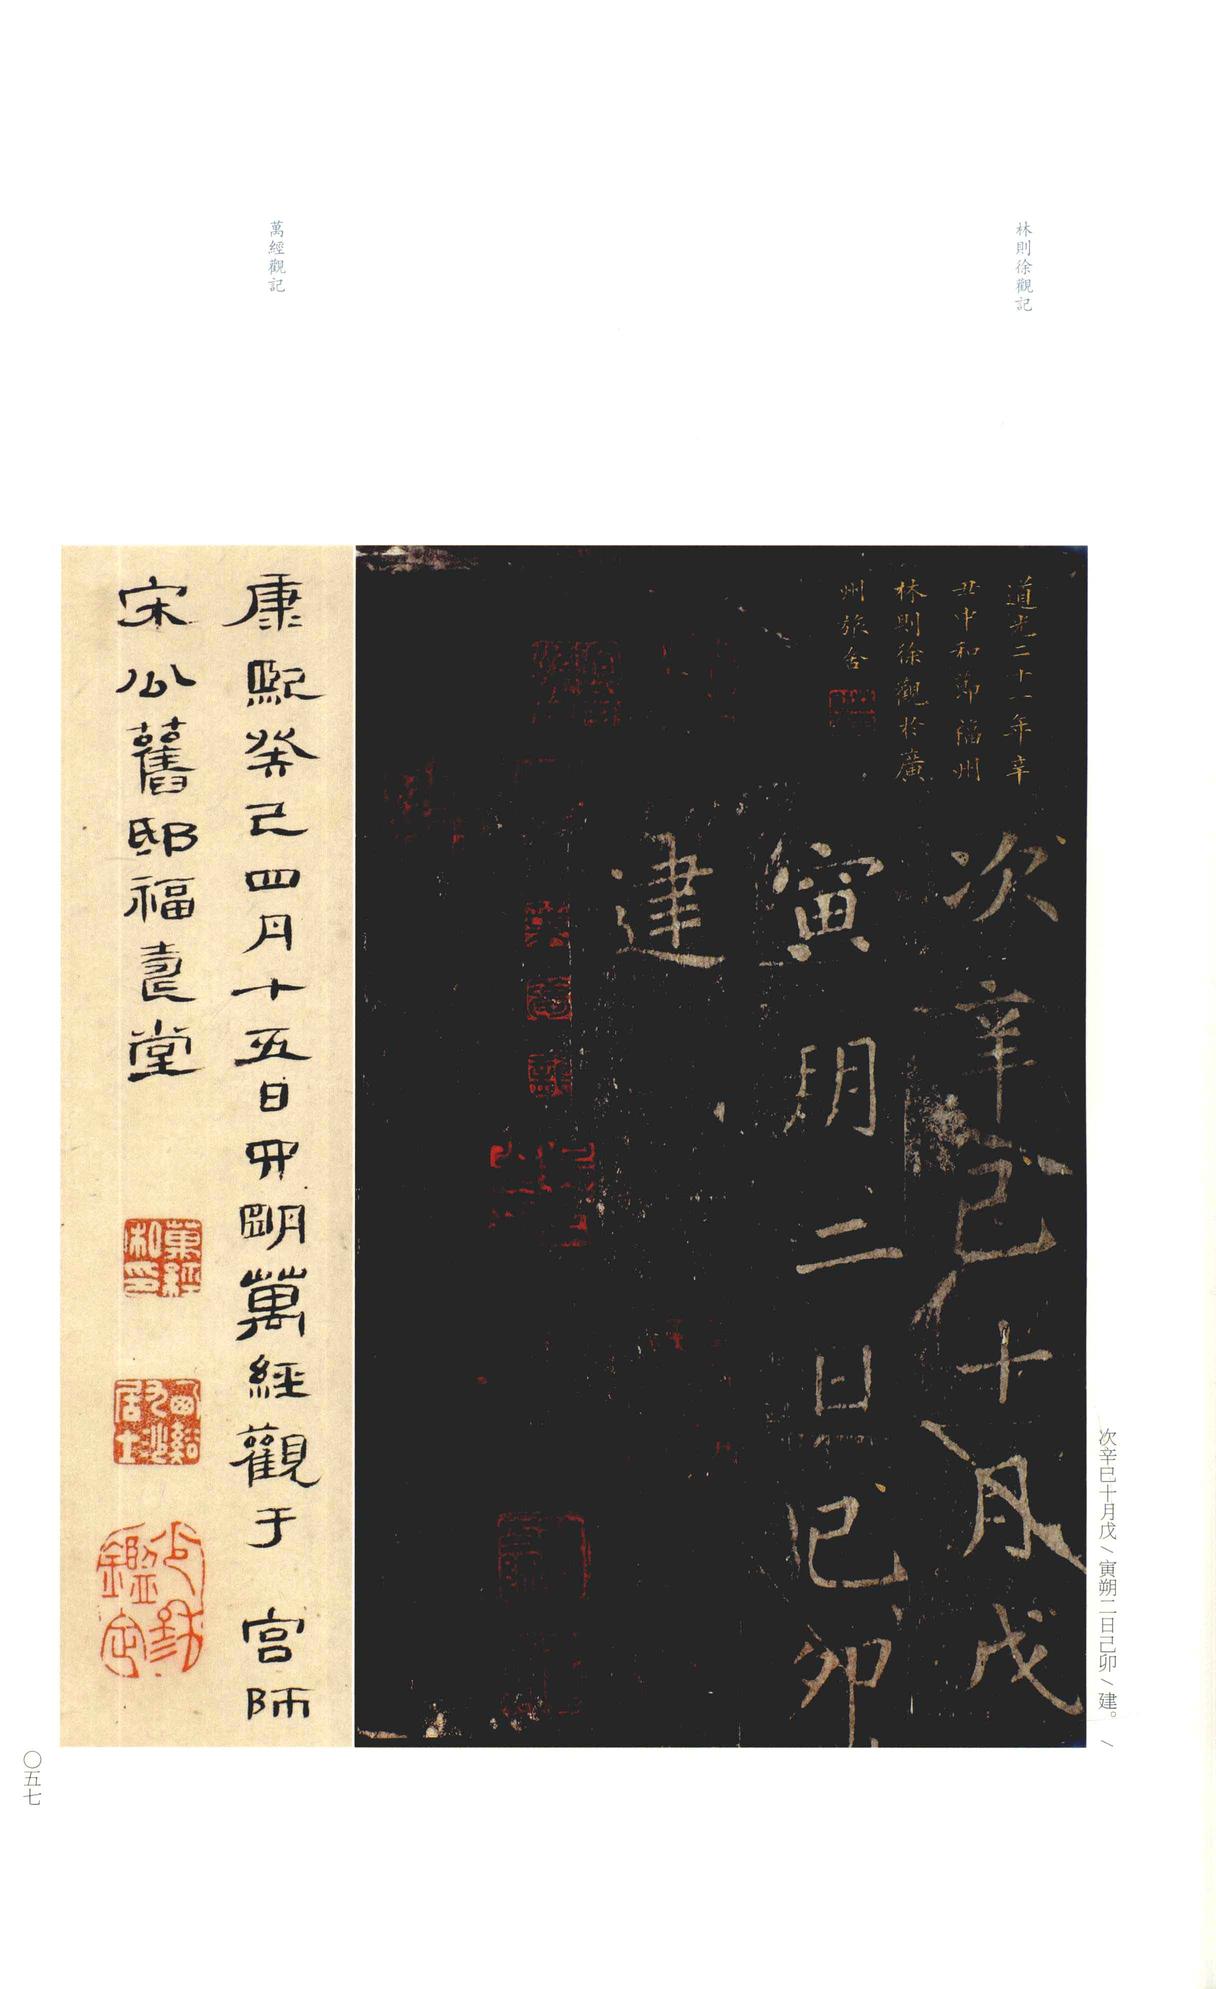 林則徐觀記
萬經觀記
道光二十一年辛
丑中和節福州
林則徐觀於廣
州旅舍
次辛巳十月戊
寅朔二日己卯
建
次辛巳十月戊／寅朔二日己卯／建。／
康熙癸巳四月十五日四明萬經觀于 宮師
宋公舊邸福壽堂
萬經私印
〇五七